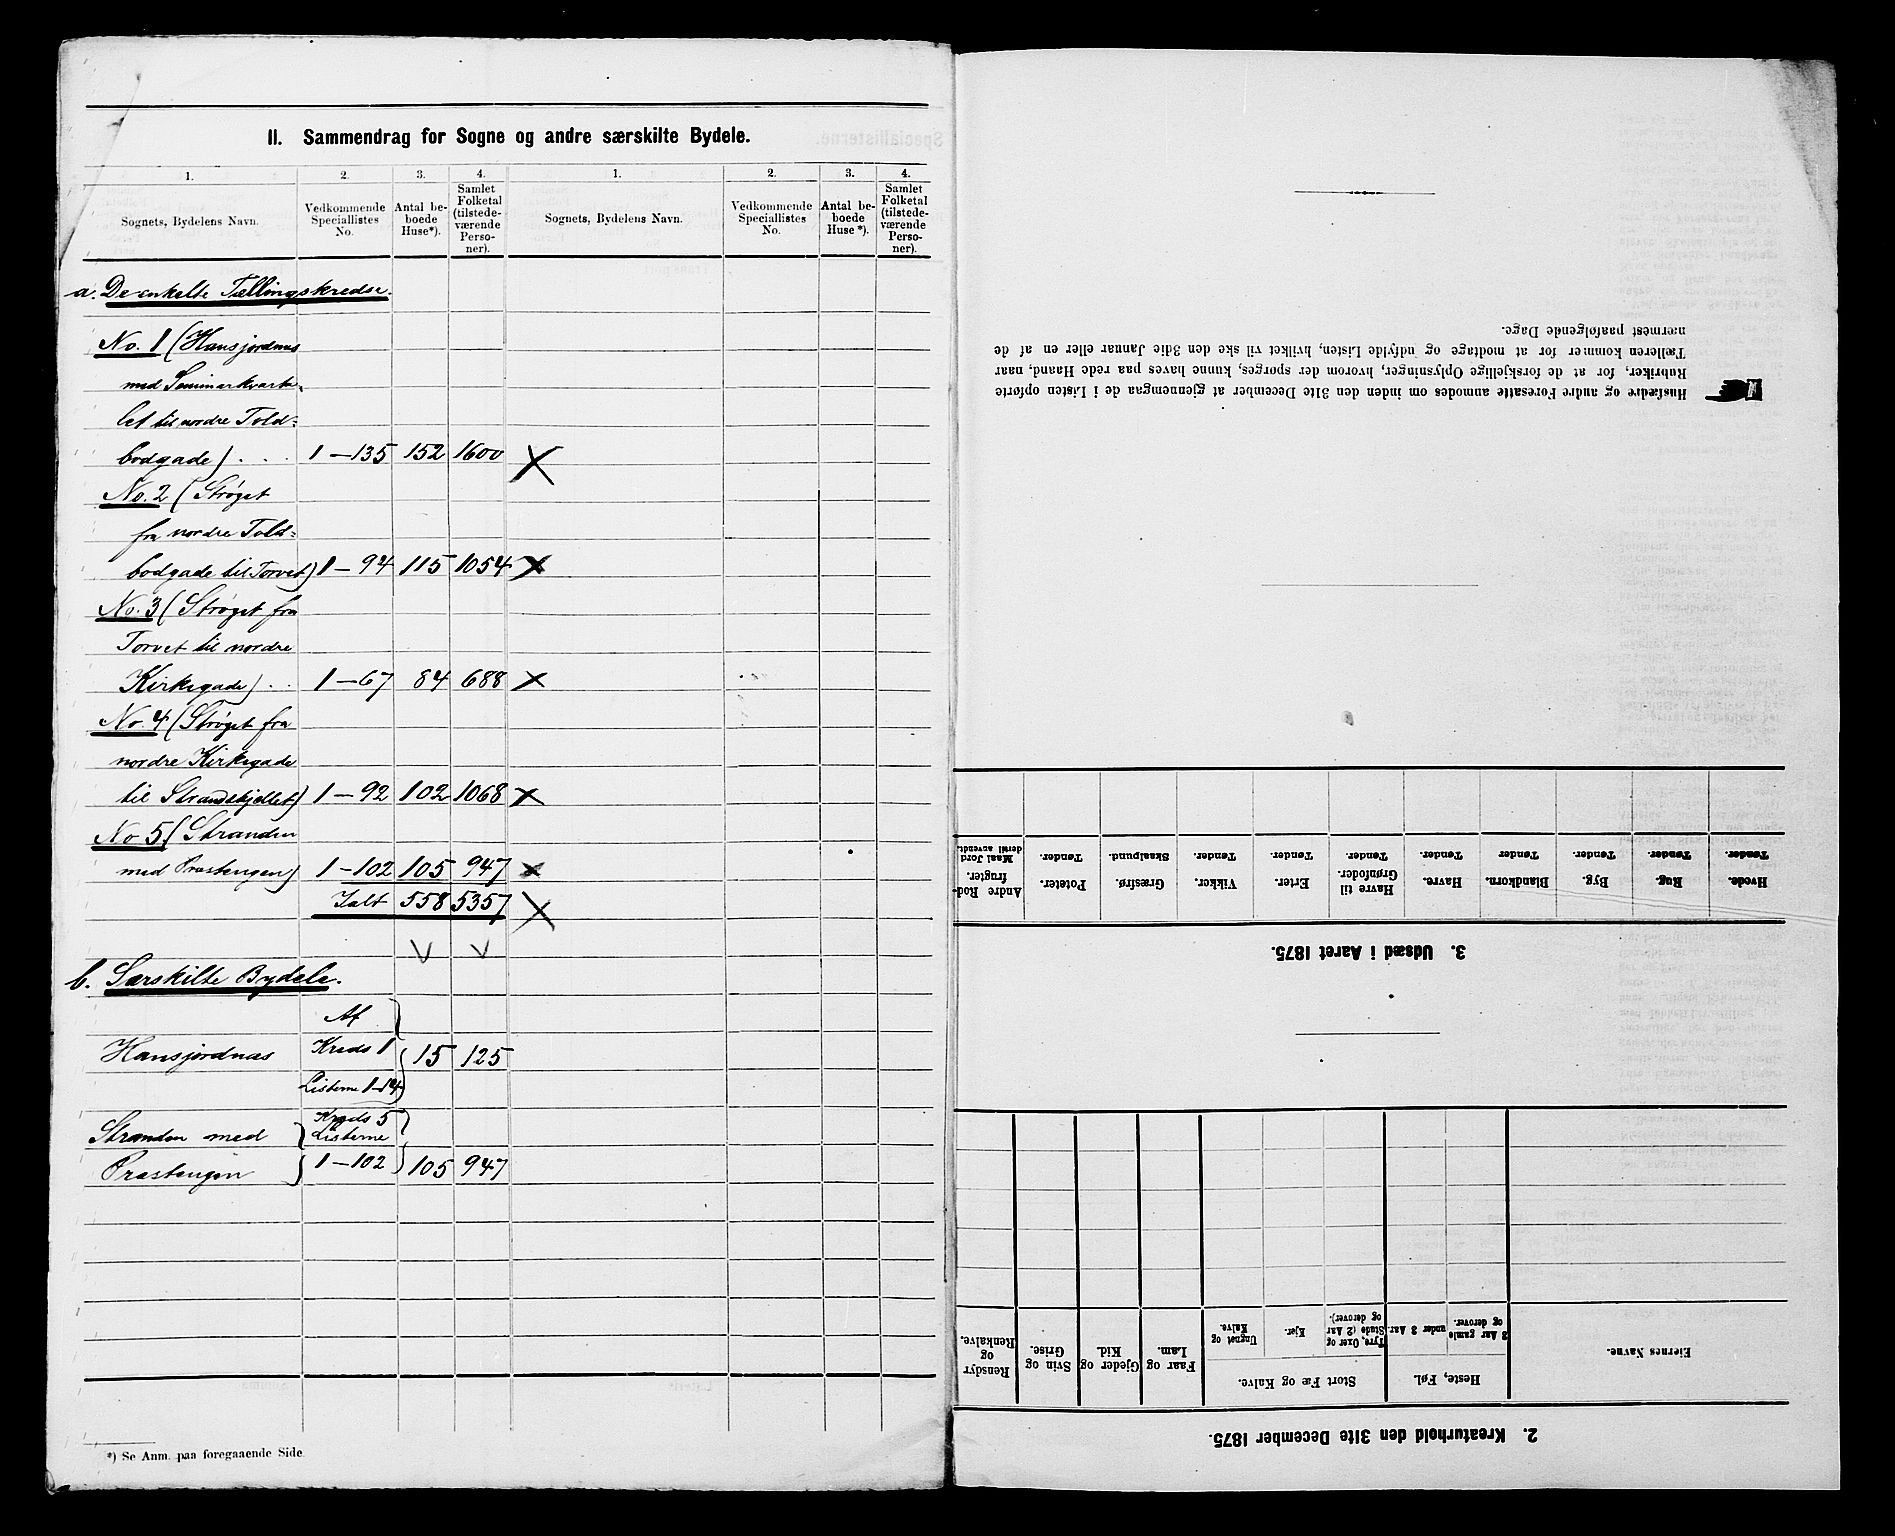 II. Sammendrag for Sogne og andre særskilte Bydele.
1. 2. 3. 4. 1. 2. 3. 4.
Sognets, Bydelens Navn. Vedkommende Speciallistes No. Antal beboede Huse*). Samlet Folketal (tilstedeværende Personer). Sognets, Bydelens Navn. Vedkommende Speciallistes No. Antal beboede Huse*). Samlet Folketal (tilstedeværende Personer).
a. De enkelte Tællingskredse.
No. 1 (Hansjordnæs
med Seminarkvarte-
let til nordre Told-
bodgade) . . . 1 — 135 152 1600
No. 2 (Strøget
fra nordre Told-
bodgade til Torvet) 1 — 94 115 1054
No. 3 (Strøget fra
Torvet til nordre
Kirkegade) . . 1 — 67 84 688
No. 4 (Strøget fra
nordre Kirkegade
til Strandskjellet) 1 — 92 102 1068
No 5 (Stranden
med Præstengen) 1 — 102 105 947
Ialt 558 5357
b. Særskilte Bydele.
Af
Hansjordnæs Kreds 1 15 125
Listerne 1-14
Kreds 5
Stranden med Listerne
Præstengen 1 — 102 105 947
*) Se Anm. paa foregaaende Side.
2. Kreaturhold den 31te December 1875.
Eiernes Navne.
Heste, Føl.
3 Aar gamle og derover.
under 3 Aar.
Stort Fæ og Kalve.
Tyre, Oxer og Stude (2 Aar og derover).
Kjer.
Ungnøt og Kalve.
Faar og Lam.
Gjeder og Kid.
Svin og Grise.
Rensdyr og Renkalve.
3. Udsæd i Aaret 1875.
Hvede. Tønder.
Rug. Tønder.
Byg. Tønder.
Blandkorn. Tønder.
Havre. Tønder.
Havre til Grønfoder. Tønder.
Erter. Tønder.
Vikker. Tønder.
Græsfrø. Skaalpund.
Poteter. Tønder.
Andre Rodfrugter. Maal Jord dertil anvendt.
Husfædre og andre Foresatte anmodes om inden den 31te December at gjennemgaa de i Listen opførte
Rubriker, for at de forskjellige Oplysninger, hvorom der spørges, kunne haves paa rede Haand, naar
Tælleren kommer for at modtage og udfylde Listen, hvilket vil ske den 3die Januar eller en af de
nærmest paafølgende Dage.